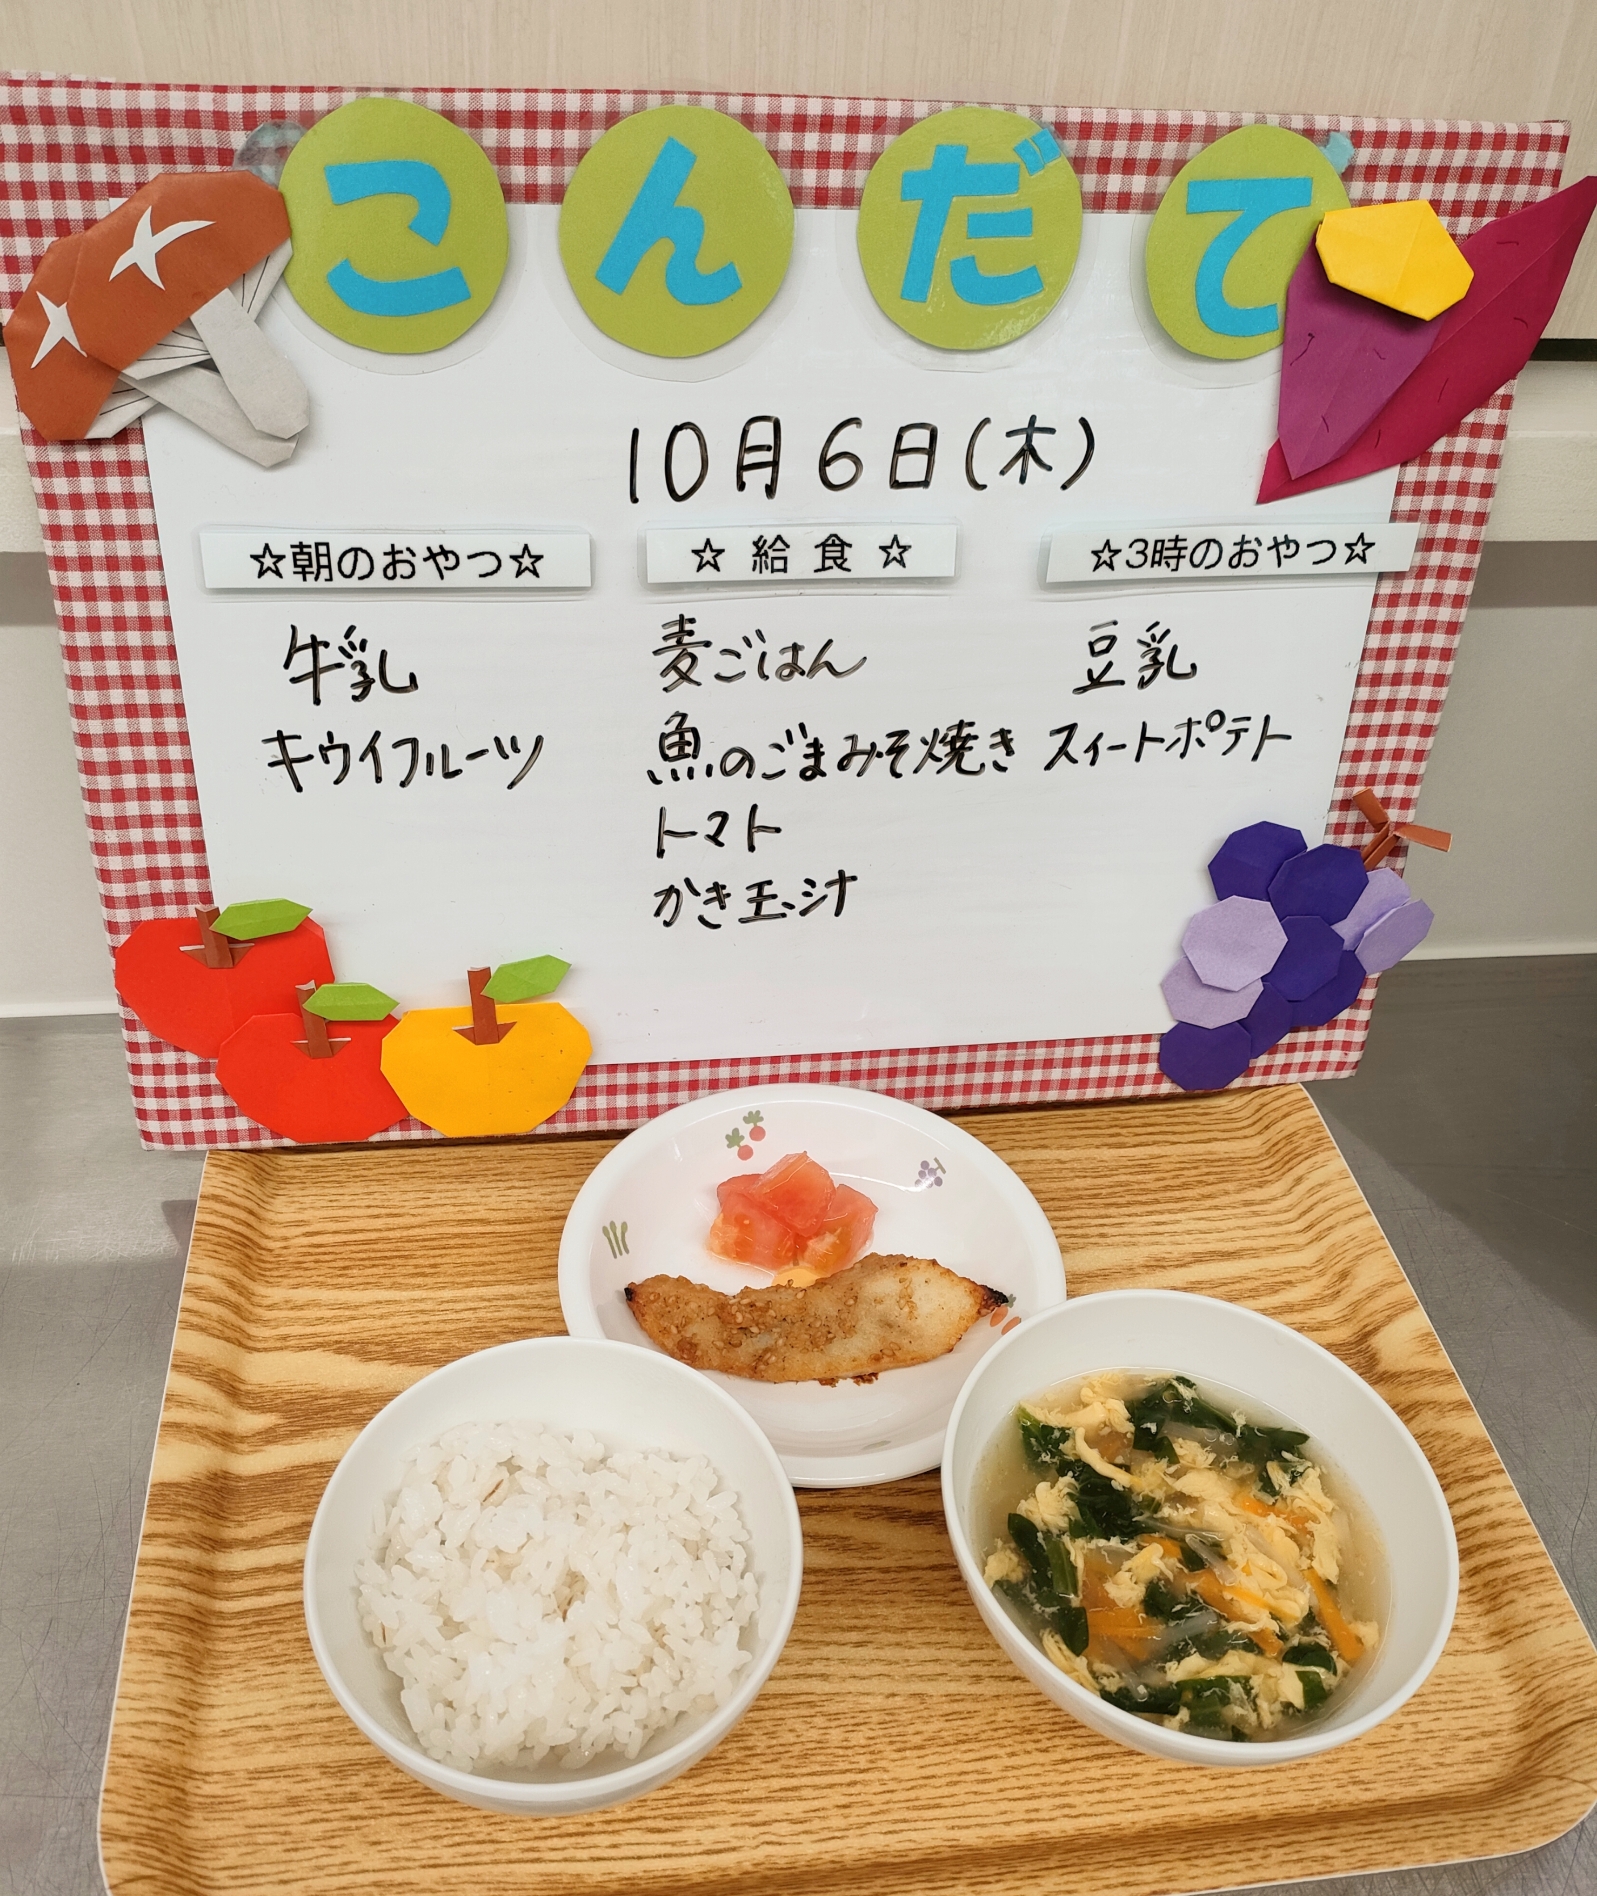 こんだて
10月6日(木)
☆朝のおやつ☆
牛乳
キウイフルーツ
☆給食☆
麦ごはん
魚のごまみそ焼き
トマト
かき玉汁
☆3時のおやつ☆
豆乳
スイートポテト